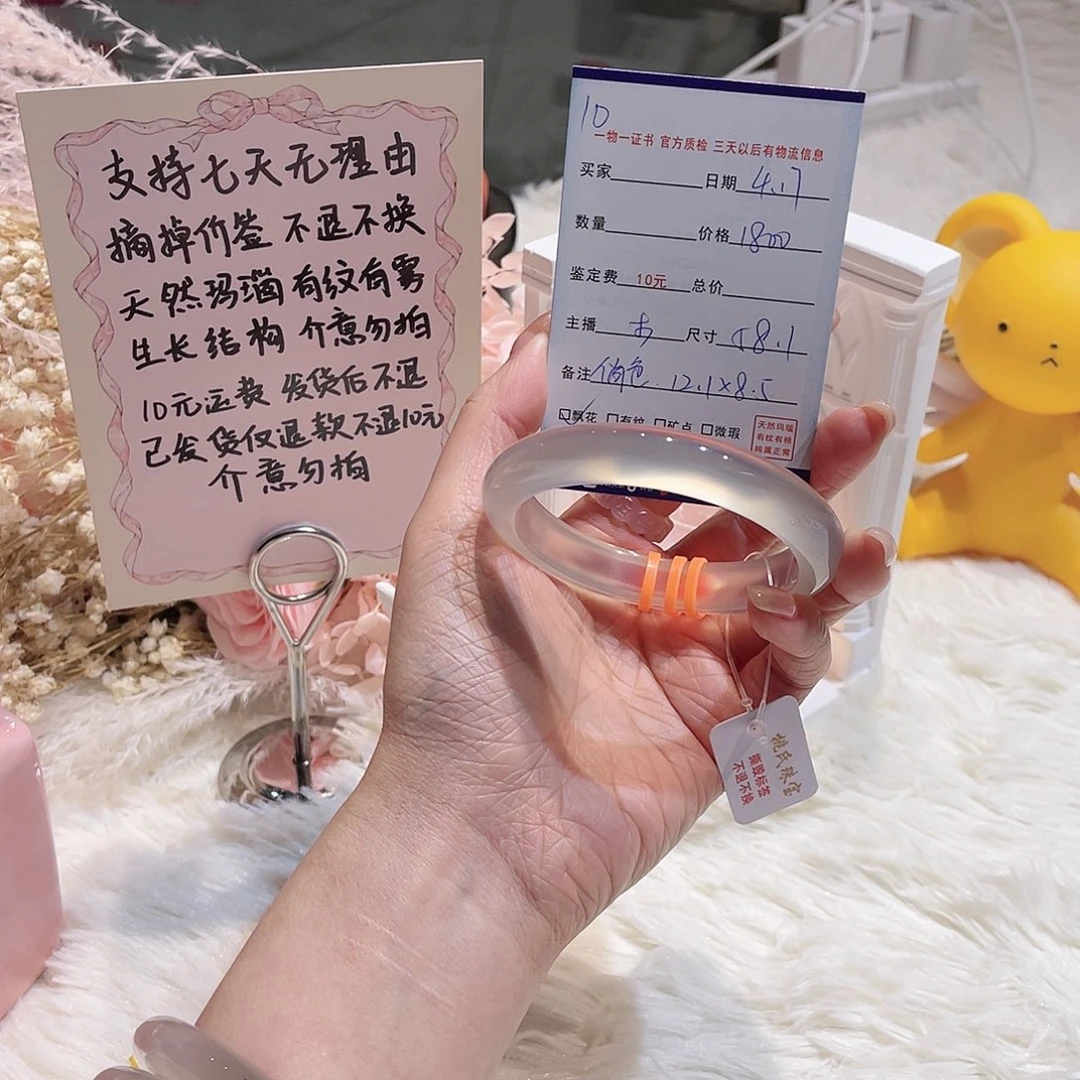 支持七天无理由
摘掉价签 不退不换
天然玛瑙 有纹有雾
生长结构 介意勿拍
10元运费 发货后不退
已发货仅退款不退10元
介意勿拍
10
一物一证书 官方质检 三天以后有物流信息
买家 日期 4.17
数量 价格 1800
鉴定费 10元 总价
主播 尺寸 58.1
备注 俏色 12.1×8.5
飘花 有纹 矿点 微瑕
天然玛瑙
有纹有棉
纯属正常
姚氏珠宝
撕毁标签
不退不换